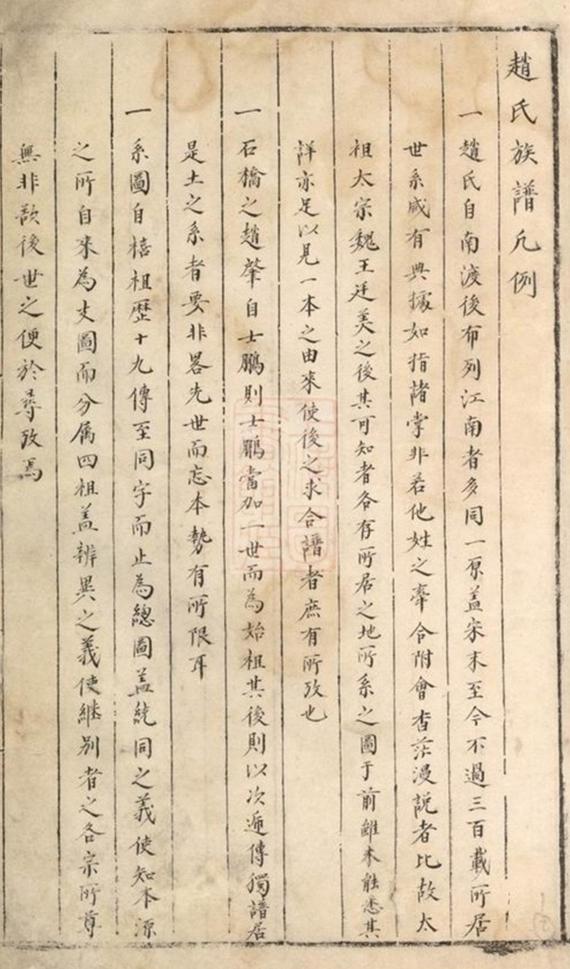 趙氏族譜凡例
一趙氏自南渡後布列江南者多同一原盖宋末至今不過三百載所居
世系咸有典據如指諸掌非若他姓之牽合附會杳茫漫説者比故太
祖太宗魏王廷美之後其可知者各存所居之地所系之圖于前雖未能悉其
詳亦足以見一本之由來使後之求合譜者庶有所攷也
一石橋之趙肇自士鵬則士鵬當加一世而為始祖其後則以次遞傳獨譜居
是土之系者要非畧先世而忘本勢有所限耳
一系圖自禧祖歷十九傳至同字而止為總圖盖統同之義使知本源
之所自來為支圖而分属四祖盖辨異之義使継别者之各宗所尊
無非欲後世之便於尋攷焉